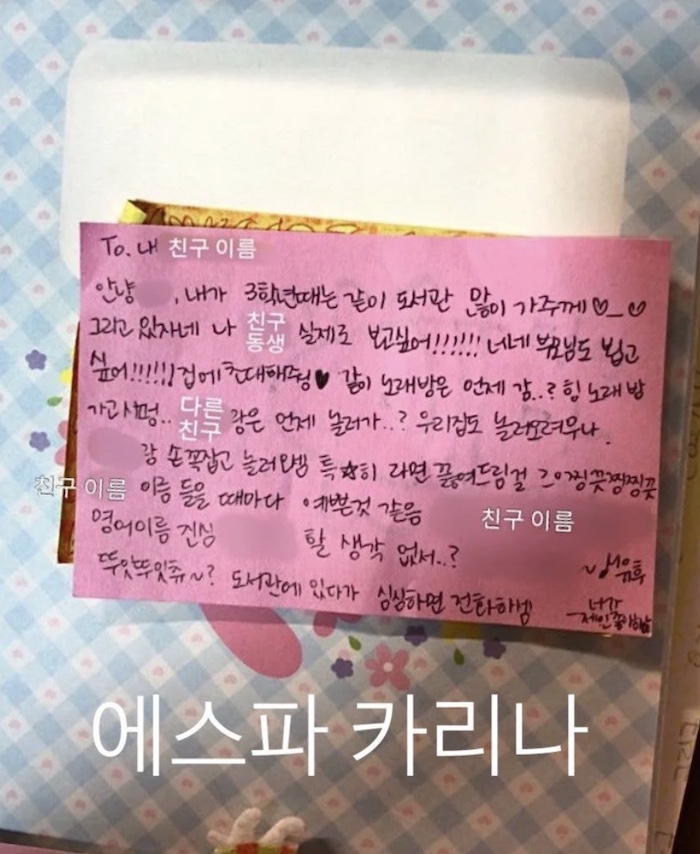 To. 내 친구 이름
안냥 , 내가 3학년때는 같이 도서관 많이 가주께♡_♡
그리고 있자네 나 친구 동생 실제로 보고싶어!!!!!!! 네네 부모님도 뵙고
싶어!!!!!! 집에 초대해줘♥ 같이 노래방은 언제 감..? 힝 노래방
가고시펑.. 다른 친구 랑은 언제 놀러가..? 우리집도 놀러오려우나.
랑 손꼭잡고 놀러오셈 특☆히 라면 끓여드림걸
친구 이름 이름 들을 때마다 예쁜것 같음 친구 이름
영어이름 진심 할 생각 없서..?
뚜잇뚜잇츄~? 도서관에 있다가 심심하면 전화하셈
너가
에스파 카리나